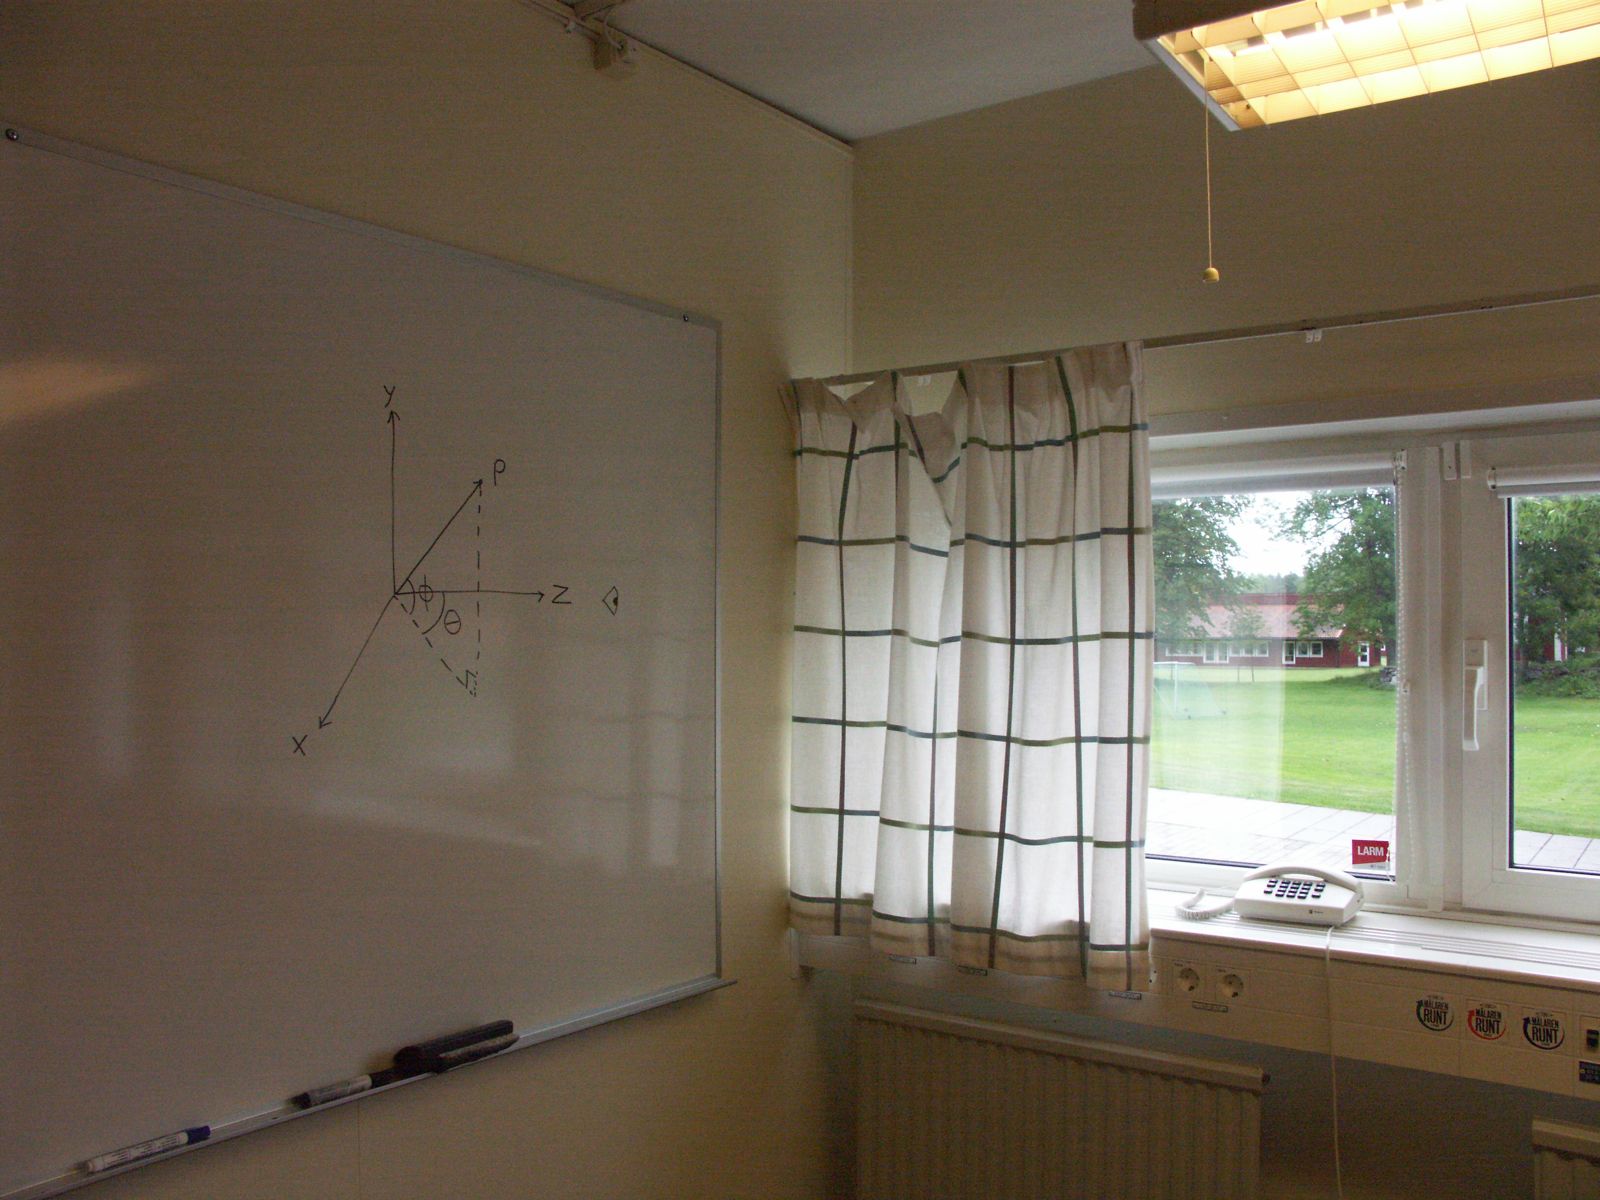 y
P
ϕ
z
θ
x
LARM
MÄLAREN
RUNT
MÄLAREN
RUNT
MÄLAREN
RUNT